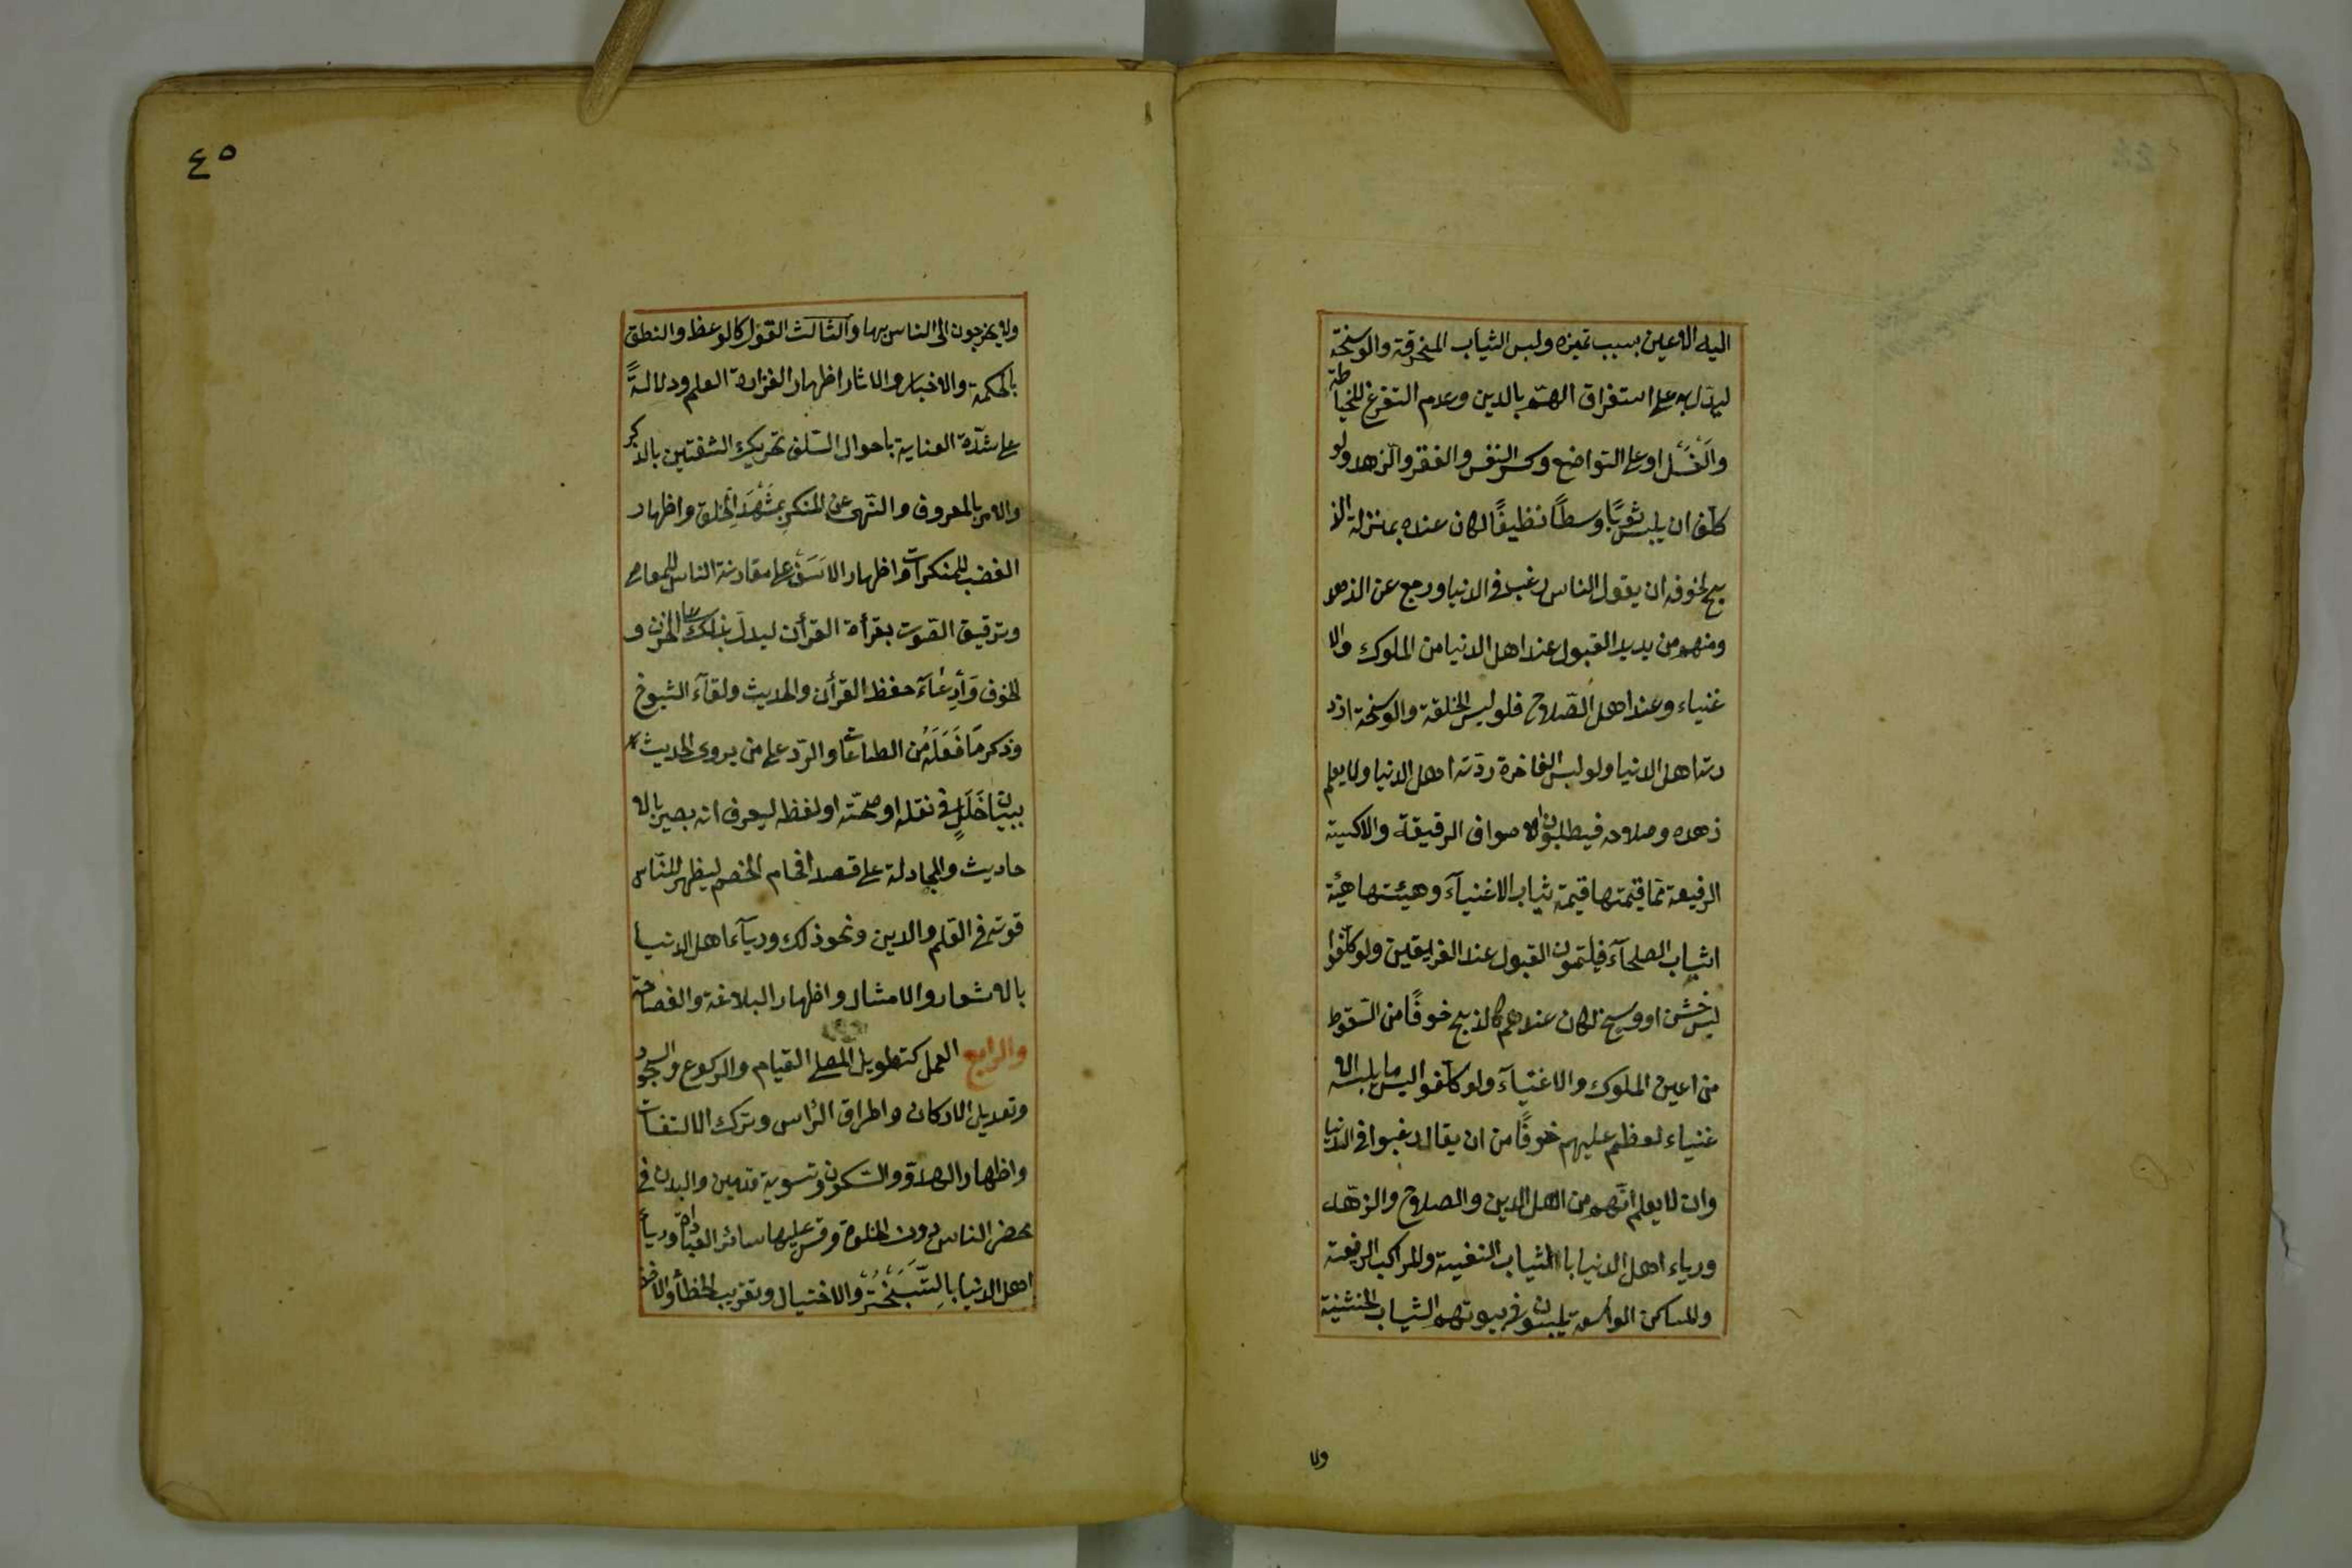 اليه الاعين بسبب تميزه ولبس الثياب المنخرقة والوسخة
ليدل به على استغراق الهم بالدين وعدم التفرغ للخياطة
والغسل او على التواضع وكسر النفس والفقر والزهد ولو
كلف ان يلبس ثوبًا وسطًا نظيفًا لكان عنده بمنزلة الذ
بح لخوفه ان يقول الناس رغب في الدنيا ورجع عن الزهد
ومنهم من يريد القبول عند اهل الدنيا من الملوك والا
غنياء وعند اهل الصّلاح فلو لبس الخلقة والوسخة ازد
رته اهل الدنيا ولو لبس الفاخرة ردّته اهل الدنيا ولا يعلم
زهده وصلاحه فيطلبون الاصواف الرقيقة والاكسية
الرفيعة مما قيمتها قيمة ثياب الاغنيآء وهيئتها هيئة
اثياب الصلحآء فيلتمون القبول عند الفريقين ولو كلفوا
لبس خشن او وسخ لكان عندهم كالذبح خوفًا من السّقوط
من اعين الملوك والاغنيآء ولو كلفوا لبس ما يلبسه الا
غنياء لعظم عليهم خوفًا من ان يقال رغبوا في الدنيا
وان لا يعلم انّهم من اهل الدين والصلاح والزهد
ورياء اهل الدنيا بالثياب النفيسة والمراكب الرفيعة
والمساكن الواسعة يلبسون في بيوتهم الثياب الخشنية
ولا
٤٥
ولا يخرجون الى الناس بها والثالث القول كالوعظ والنطق
بالحكمة والاخبار والاثار اظهار الغزارة العلم ودلالةً
على شدّة العناية باحوال السّلف تحريك الشفتين بالذكر
والامر بالمعروف والنّهى عن المنكر بمَشْهَدِ الخلق واظهار
الغضب للمنكرات واظهار الاسَفْ على مقارنة الناس للمعاصى
وترقيق الصّوت بقرأة القرأن ليدلّ بذلك على الحزن و
الخوف وَأدِعَآء حفظ القرأن والحديث ولقآء الشيوخ
وذكر مَا فَعَلَهُ من الطاعات والرّد على من يروى الحديث
ببيان خَلَلٍ في نقله او صحّته او لفظه ليعرف انه بصير بالا
حاديث والمجادلة على قصد افحام الخصم ليظهر للنّاس
قوته في العلم والدين ونحو ذلك وريآء اهل الدنيا
بالاشعار والامثال واظهار البلاغة والفصاحة
والرابع العمل كتطويل المصلى القيام والركوع والسجود
وتعديل الاركان واطراق الرّاس وترك الالتفات
واظهار الهدوّ والسّكون وتسوية قدمين واليدن في
محضر الناس دون الخلوة وقس عليها سائر العبادات وريأ
اهل الدنيا بالتَّبَخْتُرْ والاختيال وتقريب الخطأ والاخذ